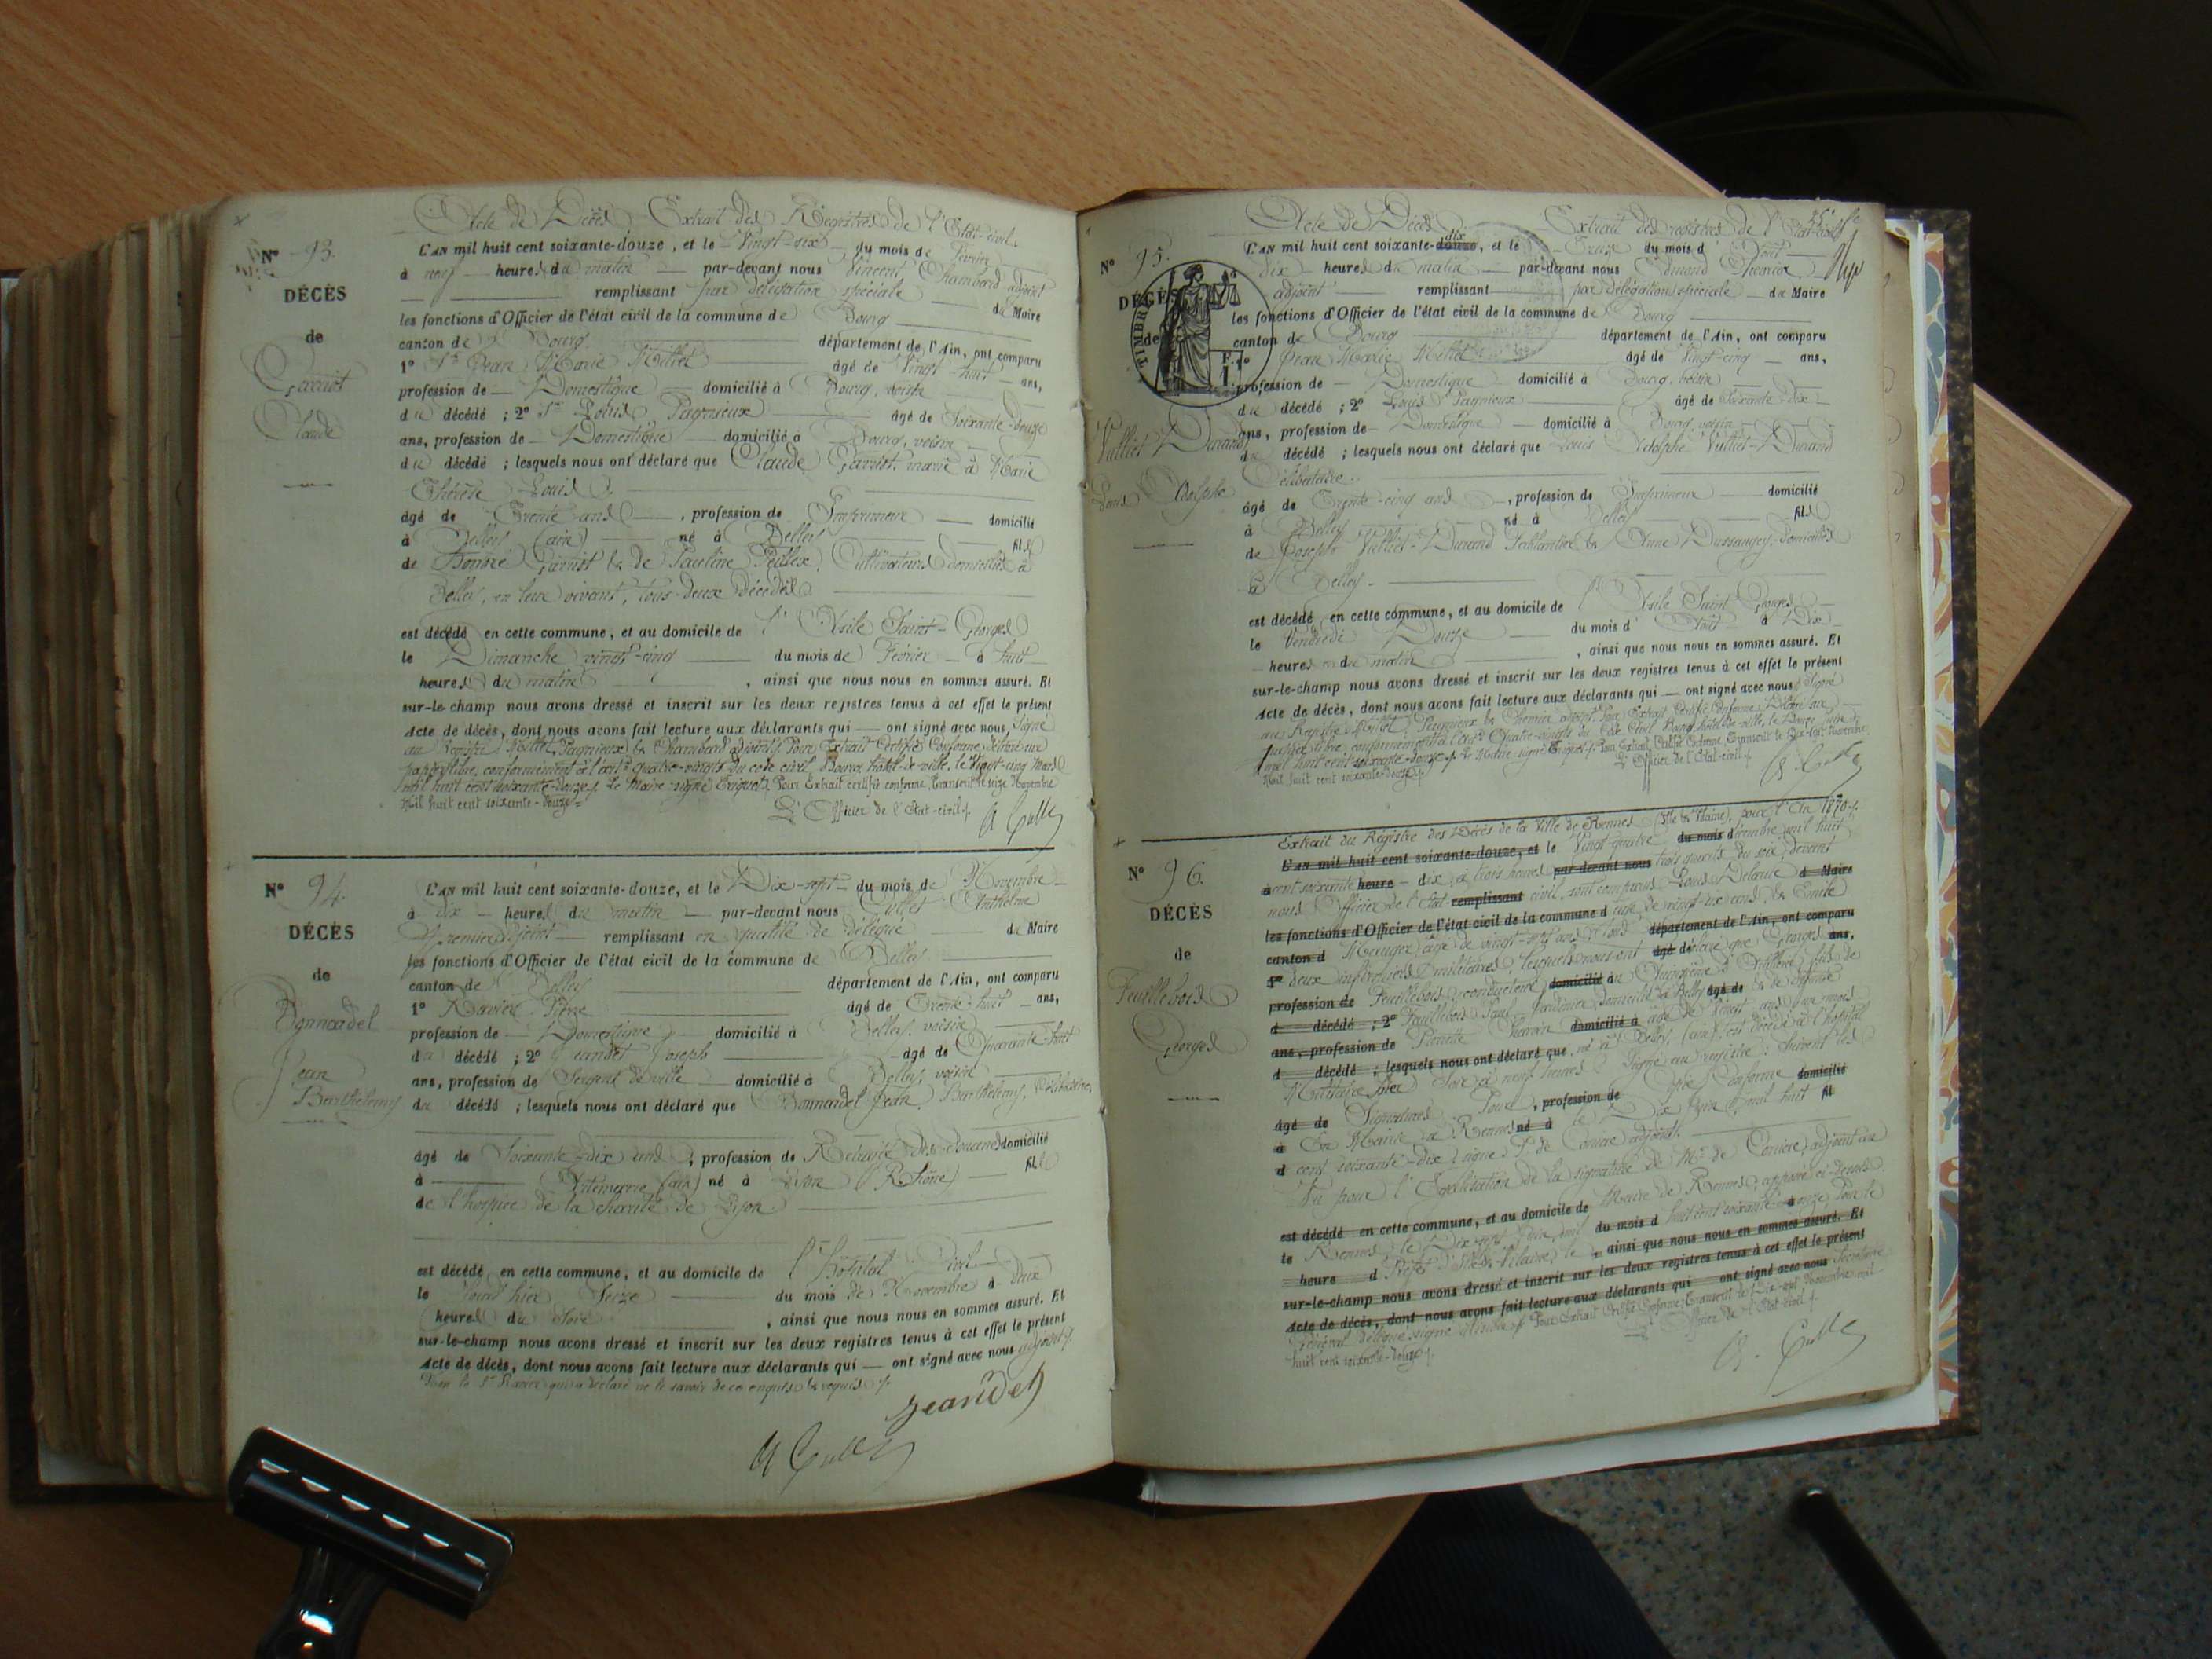 Acte de Décès Extrait des Registres de l'Etat-civil
N° 93.
DÉCÈS
de
Garriot
Claude
L'AN mil huit cent soixante-douze, et le Vingt-six du mois de Février
à neuf heures du matin par-devant nous Vincent Chambard adjoint
remplissant par délégation spéciale du Maire
les fonctions d'Officier de l'état civil de la commune de Bourg
canton de Bourg département de l'Ain, ont comparu
1° Sr Jean Marie Millet âgé de Vingt huit ans,
profession de Domestique domicilié à Bourg, voisin
du décédé ; 2° Sr Louis Pagnieux âgé de Soixante-douze
ans, profession de Domestique domicilié à Bourg, voisin
du décédé ; lesquels nous ont déclaré que Claude Garriot, marié à Marie
Thérèse Louis
âgé de Trente ans, profession de Imprimeur domicilié
à Belley (ain) né à Belley fils
de Honoré Garriot & de Pauline Peillex, Cultivateurs domiciliés à
Belley, en leur vivant, tous deux décédés
est décédé en cette commune, et au domicile de l'Asile Saint-Georges
le Dimanche vingt-cinq du mois de Février à huit
heures du matin, ainsi que nous nous en sommes assuré. Et
sur-le-champ nous avons dressé et inscrit sur les deux registres tenus à cet effet le présent
Acte de décès, dont nous avons fait lecture aux déclarants qui ont signé avec nous, Signé
au Registre : Millet, Pagnieux & Chambard adjoint. Pour Extrait Certifié Conforme, délivré sur
papier libre, conformément à l'art. quatre-vingts du code civil, Bourg, hôtel-de-ville, le Vingt-cinq Mars
mil huit cent soixante-douze. Le Maire signé Enquet. Pour Extrait certifié conforme, transcrit le seize Novembre
Mil huit cent soixante-douze.
L'Officier de l'Etat-civil.
N° 94
DÉCÈS
de
Bonnardel
Jean
Barthélemy
L'AN mil huit cent soixante-douze, et le Dix-sept du mois de Novembre
à dix heures du matin par-devant nous Culles Anthelme
premier adjoint remplissant en qualité de délégué du Maire
les fonctions d'Officier de l'état civil de la commune de Belley
canton de Belley département de l'Ain, ont comparu
1° Ravier Pierre âgé de Trente-huit ans,
profession de Domestique domicilié à Belley, voisin
du décédé ; 2° Jeandet Joseph âgé de Quarante-huit
ans, profession de Sergent de ville domicilié à Belley, voisin
du décédé ; lesquels nous ont déclaré que Bonnardel Jean Barthélemy, Célibataire,
âgé de Soixante-dix ans, profession de Retraité des douanes domicilié
à (ain) né à Lyon (Rhône) fils
de l'hospice de la charité de Lyon
est décédé en cette commune, et au domicile de l'Hôpital civil
le Jour d'hier Seize du mois de Novembre à deux
heures du Soir, ainsi que nous nous en sommes assuré. Et
sur-le-champ nous avons dressé et inscrit sur les deux registres tenus à cet effet le présent
Acte de décès, dont nous avons fait lecture aux déclarants qui ont signé avec nous adjoint,
Non le Sr Ravier qui a déclaré ne le savoir de ce enquis & requis.
Jeandet
Acte de Décès Extrait des registres de l'Etat-civil
N° 95.
DÉCÈS
de
TIMBRE
Vulliet-Durand
Louis Adolphe
L'AN mil huit cent soixante-douze dix, et le Treize du mois d'Août
à dix heures du matin par-devant nous Edmond Chevrier
adjoint remplissant par délégation spéciale du Maire
les fonctions d'Officier de l'état civil de la commune de Bourg
canton de Bourg département de l'Ain, ont comparu
1° Jean Marie Millet âgé de Vingt-cinq ans,
profession de Domestique domicilié à Bourg, voisin
du décédé ; 2° Louis Pagnieux âgé de Soixante-dix
ans, profession de Domestique domicilié à Bourg, voisin
du décédé ; lesquels nous ont déclaré que Louis Adolphe Vulliet-Durand
Célibataire.
âgé de Trente-cinq ans, profession de Imprimeur domicilié
à Belley né à Belley fils
de Joseph Vulliet-Durand Ferblantier & Anne domiciliés
à Belley.
est décédé en cette commune, et au domicile de l'Asile Saint Georges
le Vendredi Douze du mois d'Août à Dix
heures du matin, ainsi que nous nous en sommes assuré. Et
sur-le-champ nous avons dressé et inscrit sur les deux registres tenus à cet effet le présent
Acte de décès, dont nous avons fait lecture aux déclarants qui ont signé avec nous Signé
au Registre : Millet, Pagnieux & Chevrier adjoint. Pour Extrait Certifié Conforme, Délivré sur
papier libre, conformément à l'art. Quatre-vingts du Code Civil
mil huit cent soixante-douze. Le Maire signé Enquet. Pour Extrait Certifié Conforme, Transcrit le Dix-sept Novembre
Mil huit cent soixante-douze.
L'Officier de l'Etat-civil.
N° 96.
DÉCÈS
de
Feuillebois
Georges
Extrait du Régistre des Décès de la Ville de Rennes (Ille & Vilaine), pour l'An 1870.
L'AN mil huit cent soixante-douze, et le Vingt-quatre du mois décembre mil huit
cent soixante heure dix, à trois heures par-devant nous trois quarts du soir, devant
nous Officier de l'Etat remplissant civil, sont comparus Louis Delarue du Maire
les fonctions d'Officier de l'état civil de la commune d âgé de vingt-six ans, & Emile
canton d âgé de vingt-neuf ans, tous département de l'Ain, ont comparu
1° deux infirmiers militaires, lesquels nous ont âgé de déclaré que Georges ans,
profession de Feuillebois, conducteur domicilié au d'Artillerie, fils de
d décédé ; 2° Feuillebois Paul, Jardinier domicilié à Belley âgé de & de défunte
ans, profession de Pierrette domicilié à âgé de Vingt ans mois
d décédé ; lesquels nous ont déclaré que, né à Belley, (ain), est décédé à l'hôpital
Militaire hier Soir à neuf heures. Signé au registre : Suivent les
âgé de Signatures. Pour, profession de Copie Conforme domicilié
à En Mairie, à Rennes né à le Dix Juin mil huit fil
d cent soixante-dix signé P. de adjoint.
Vu pour l'Egalisation de la signature de Mr de adjoint au
est décédé en cette commune, et au domicile de Maire de Rennes, apposée ci-dessus.
le Rennes, le Dix-sept Juin mil du mois d huit cent soixante à onze, Pour le
heure d Préfet d'Ille & Vilaine, le, ainsi que nous nous en sommes assuré. Et
sur-le-champ nous avons dressé et inscrit sur les deux registres tenus à cet effet le présent
Acte de décès, dont nous avons fait lecture aux déclarants qui ont signé avec nous Secrétaire
Général délégué signé Pour Extrait Certifié Conforme, Transcrit le Dix-sept Novembre mil
huit cent soixante-douze.
L'Officier de l'Etat-civil.